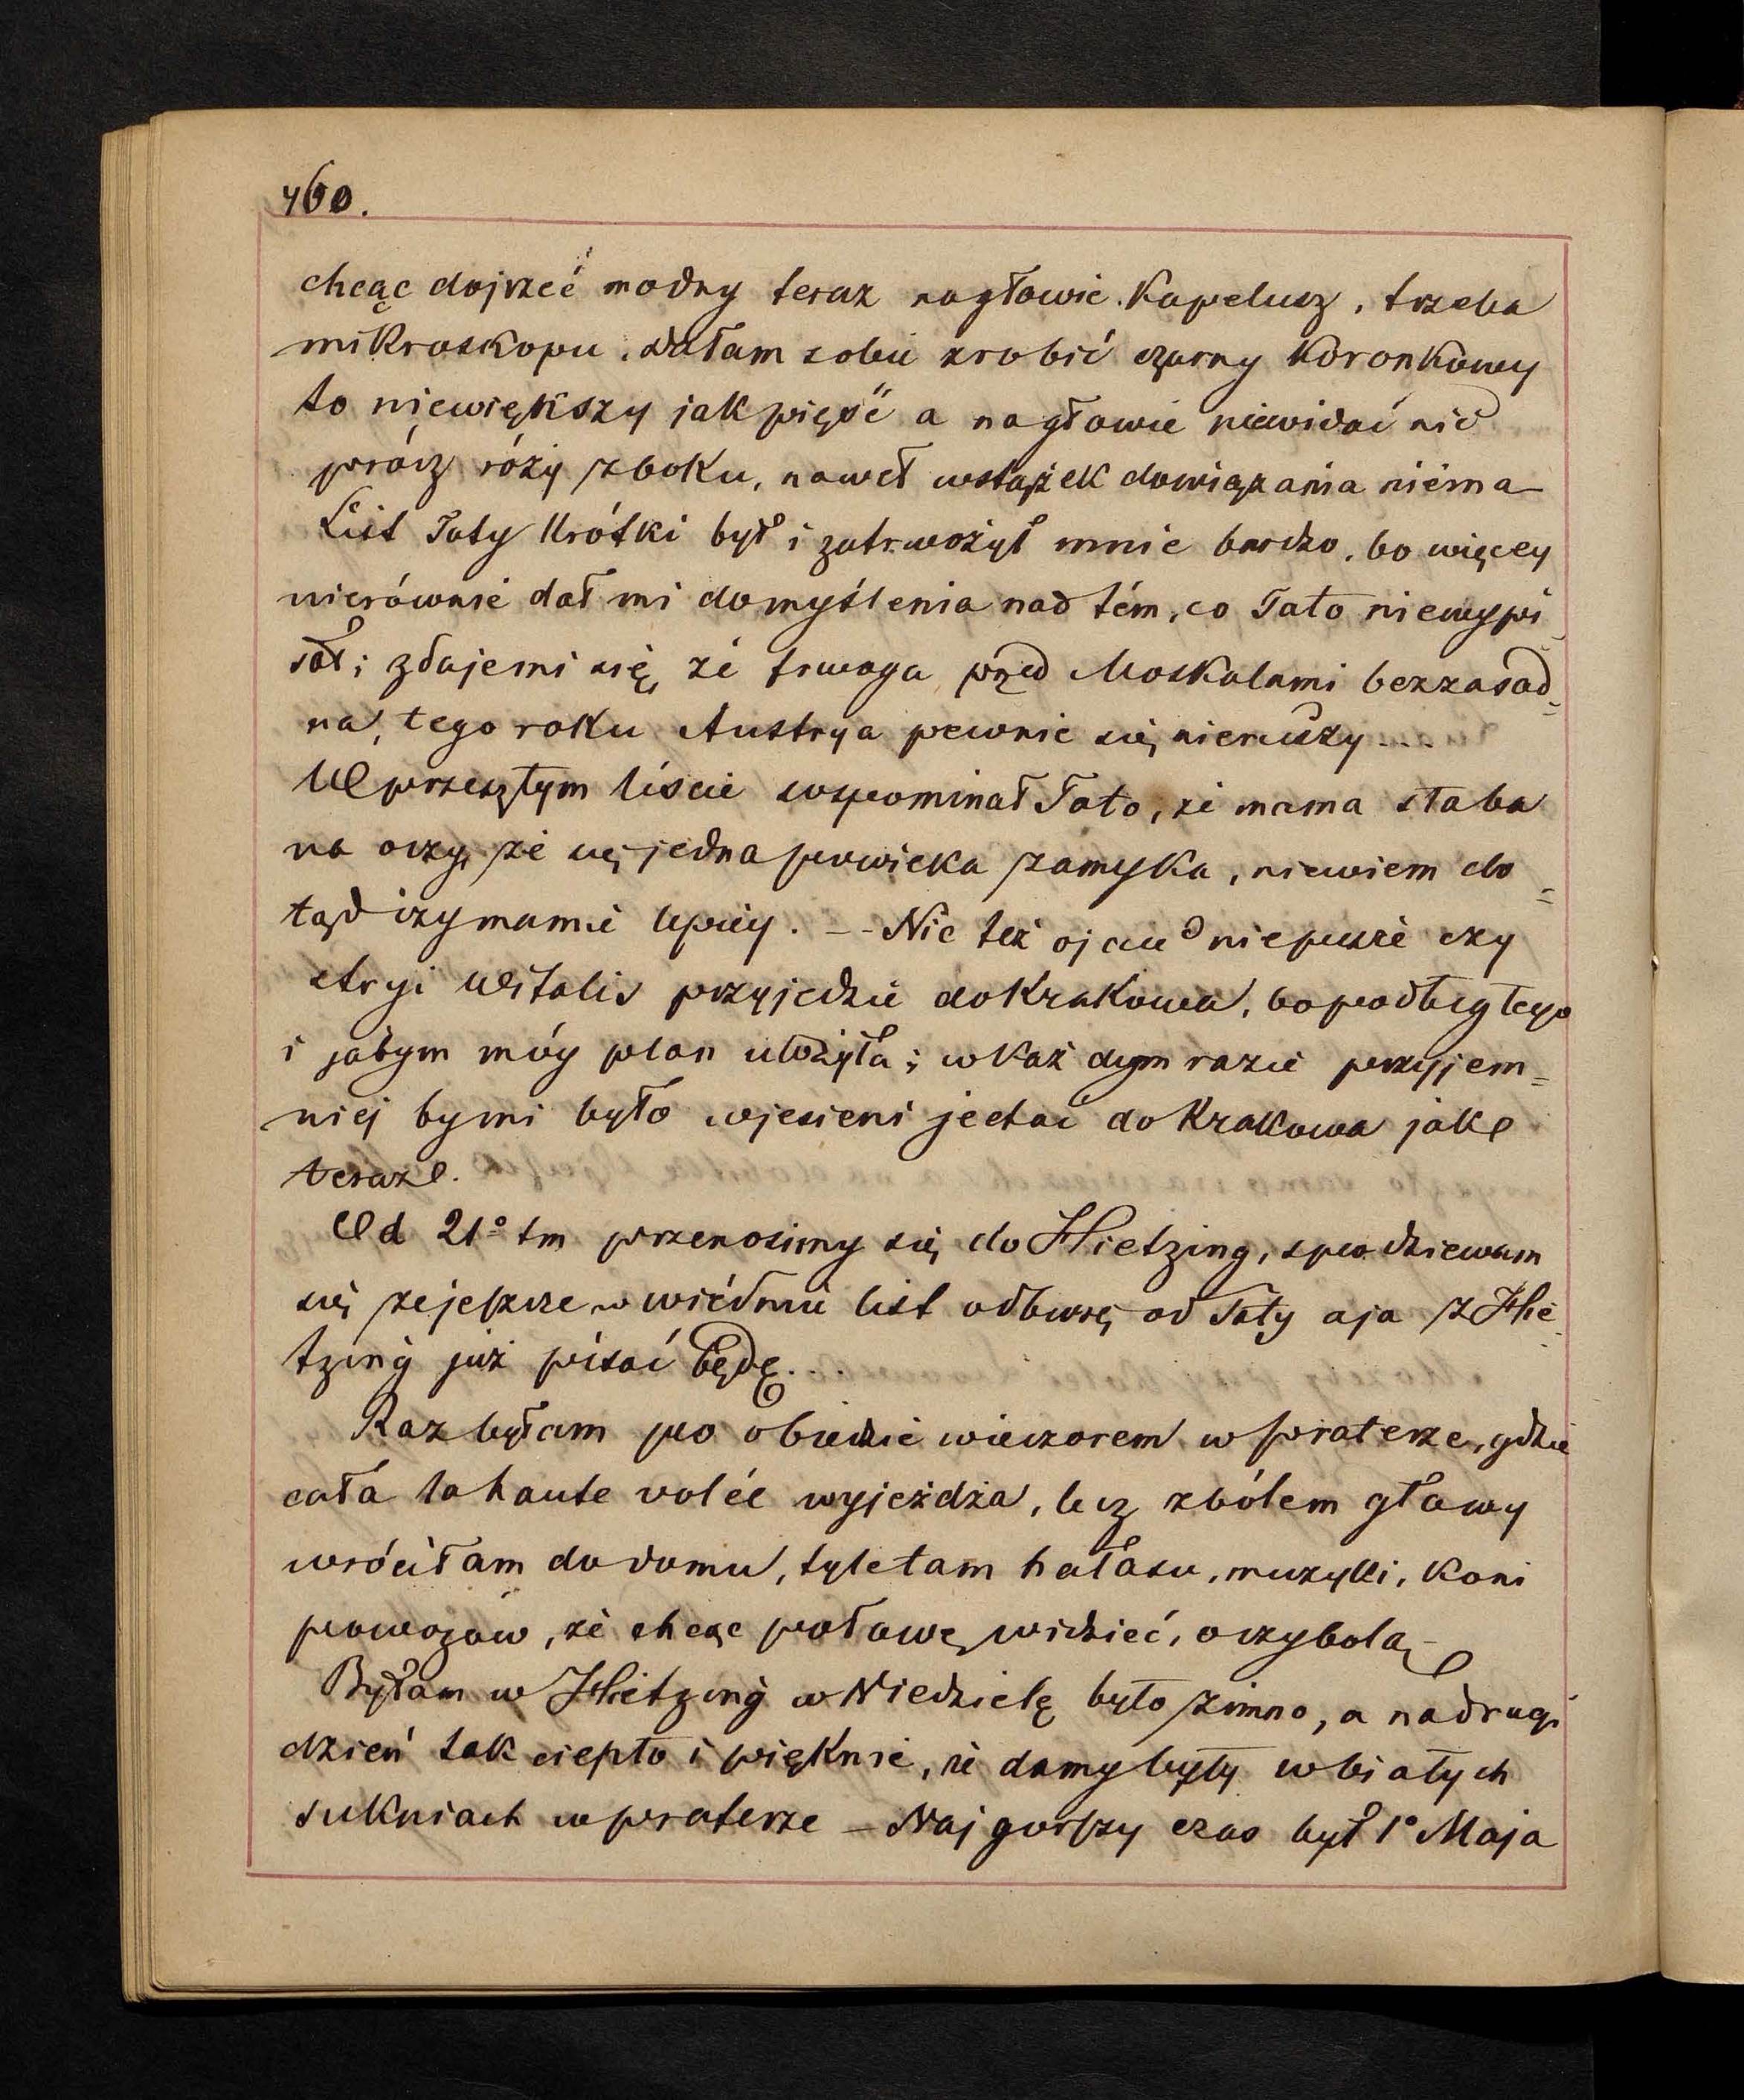 460.
chcąc dojrzeć modny teraz nagłowie kapelusz, trzeba
mikroskopu. dałam sobie zrobić czarny koronkowy
to niewiększy jak pięść a nagłowie niewidać nic
prócz róży zboku, nawet wstążek dowiązania niéma –
List Taty krótki był i zatrwożył mnie bardzo, bo więcey
nierównie dał mi domyślenia nad tém, co Tato niewypi
sał; zdajemi się, że trwoga przed Moskalami bezzasad=
na, tego roku Austrya pewnie się nieruszy....
W przeszłym liście wspominał Tato, że mama słaba
na oczy, że się jedna powieka zamyka, niewiem do=
tąd czy mamie lepiéy. -- Nic też ojciec niepisze czy
stryi Witalis przyjedzie do Krakowa, bo podług tego
i jabym móy plan ułożyła; w każdym razie przyjem=
niej bymi było wjesieni jechać do Krakowa jak
teraz.
Od 21° tm przenosimy się do Hietzing, spodziewam
się żejeszcze w wiédniu list odbiorę od Taty aja z Hie
tzing już pisać będę...
Raz byłam po obiedzie wieczorem w praterze, gdzie
cała la haute volée wyjeżdża, lecz zbólem głowy
wróciłam do domu, tyle tam hałasu, muzyki, koni
powozów, że chcąc połowę widzieć, oczy bolą –
Byłam w Hietzing w Niedzielę było zimno, a nadrugi
dzień tak ciepło i pięknie, że damy były w białych
sukniach w praterze – Najgorszy czas był 1° Maja